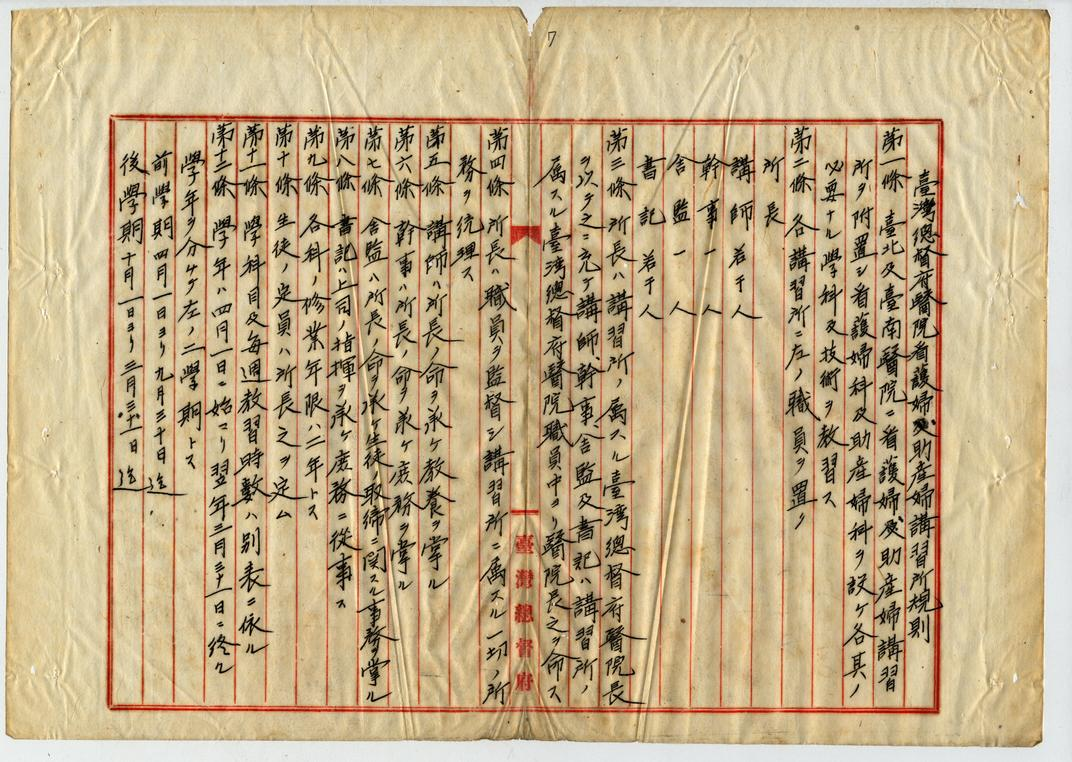 7
臺灣總督府醫院看護婦及助産婦講習所規則
第一條 臺北及臺南醫院ニ看護婦及助産婦講習
所ヲ附置シ看護婦科及助産婦科ヲ設ケ各其ノ
必要ナル學科及技術ヲ教習ス
第二條 各講習所ニ左ノ職員ヲ置ク
所長
講師 若干人
幹事 一人
舎監 一人
書記 若干人
第三條 所長ハ講習所ノ属スル臺湾總督府醫院長
ヲ以テ之ニ充テ講師、幹事、舎監及書記ハ講習所ノ
属スル臺湾總督府醫院職員中ヨリ醫院長之ヲ命ス
臺灣總督府
第四條 所長ハ職員ヲ監督シ講習所ニ属スル一切ノ所
務ヲ統理ス
第五條 講師ハ所長ノ命ヲ承ケ教養ヲ掌ル
第六條 幹事ハ所長ノ命ヲ承ケ庶務ヲ掌ル
第七條 舎監ハ所長ノ命ヲ承ケ生徒ノ取締ニ関スル事務ヲ掌ル
第八條 書記ハ上司ノ指揮ヲ承ケ庶務ニ從事ス
第九條 各科ノ修業年限ハ二年トス
第十條 生徒ノ定員ハ所長之ヲ定ム
第十一條 學科目及毎週教習時數ハ別表ニ依ル
第十二條 學年ハ四月一日ニ始マリ翌年三月三十一日ニ終ル
學年ヲ分ケテ左ノ二學期トス
前學期 四月一日ヨリ九月三十日迄
後學期 十月一日ヨリ三月三十一日迄